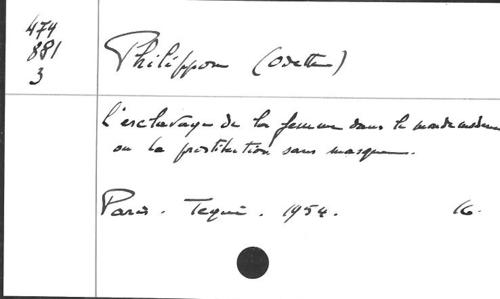 474
881
3
Philippon (Odette)
l'esclavage de la femme dans le monde moderne
ou la prostitution sans masque.
Paris. Tequi. 1954. 16.